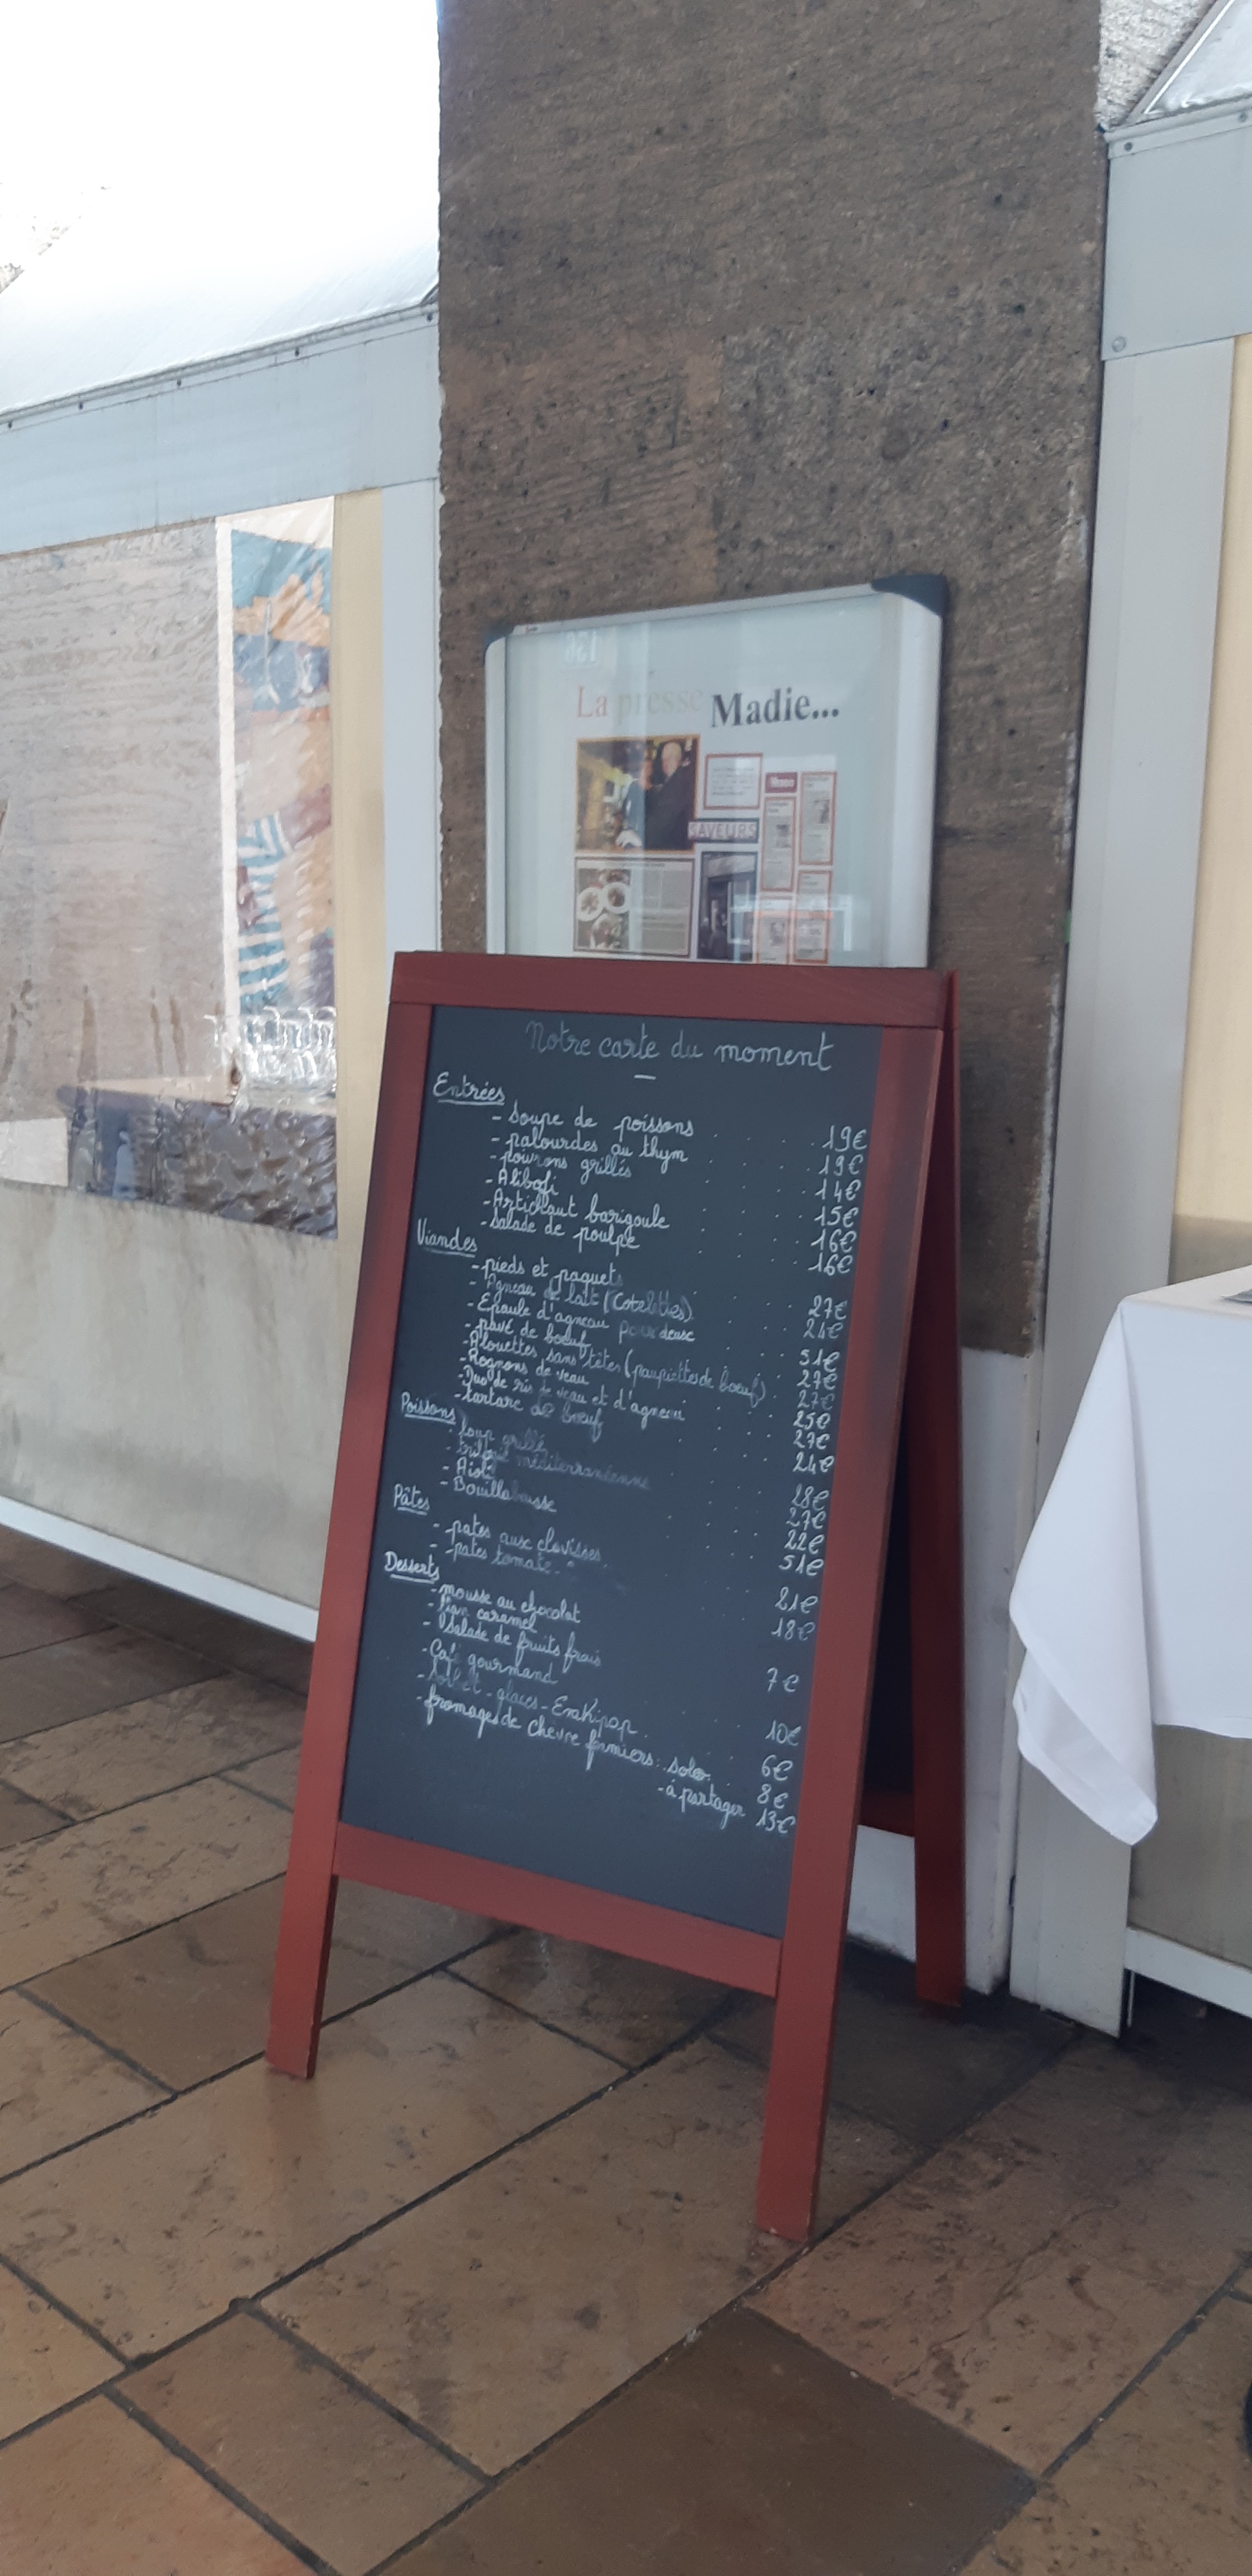 La presse Madie...
SAVEURS
Notre carte du moment
Entrées
- Soupe de poissons . . . 19€
- palourdes au thym . . . 19€
- poivrons grillés . . . 14€
- Alibofi . . . 15€
- Artichaut barigoule . . . 16€
- Salade de poulpe . . . 16€
Viandes
- pieds et paquets . . . 27€
- Agneau de lait (Cotelettes) . . . 24€
- Epaule d'agneau pour deux . . . 51€
- pavé de boeuf . . . 27€
- Alouettes sans têtes (paupiettes de boeuf) . 27€
- Rognons de veau . . . 25€
- Duo de ris de veau et d'agneau . . . 27€
- tartare de boeuf . . . 24€
Poissons
- loup grillé . . . 28€
- méditerranéenne . . . 27€
- Aioli . . . 22€
- Bouillabaisse . . . 51€
Pâtes
- pates aux clovisses . . . 21€
- pates tomate . . . 18€
Desserts
- mousse au chocolat
- flan caramel
- Salade de fruits frais 7€
- Café gourmand . . . 10€
- Sorbet - glaces - Erakipop . . . 6€
- fromages de chèvre fermiers : solo . . 8€
- à partager 13€